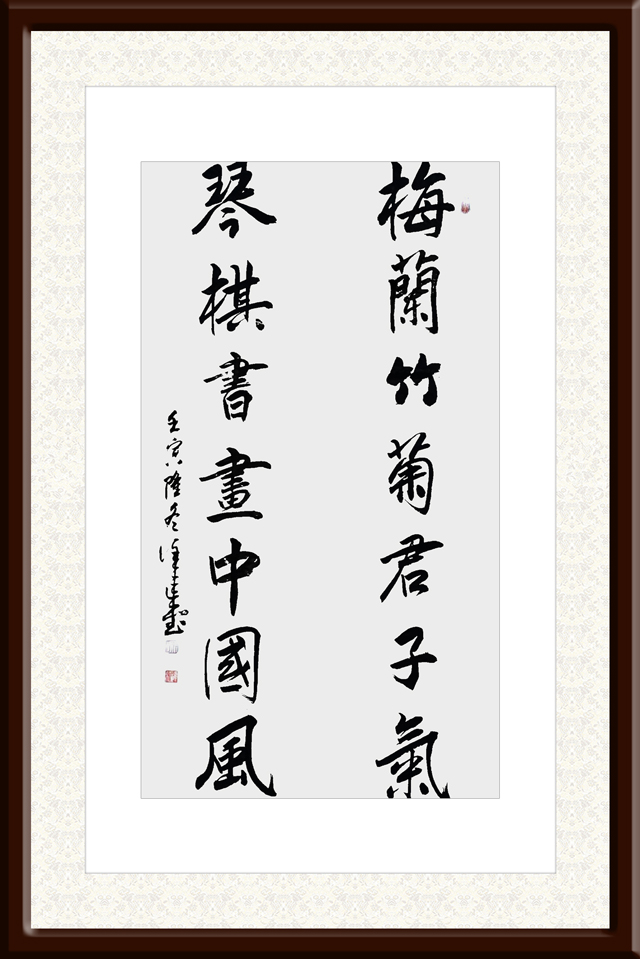 梅蘭竹菊君子氣
琴棋書畫中國風
壬寅隆冬